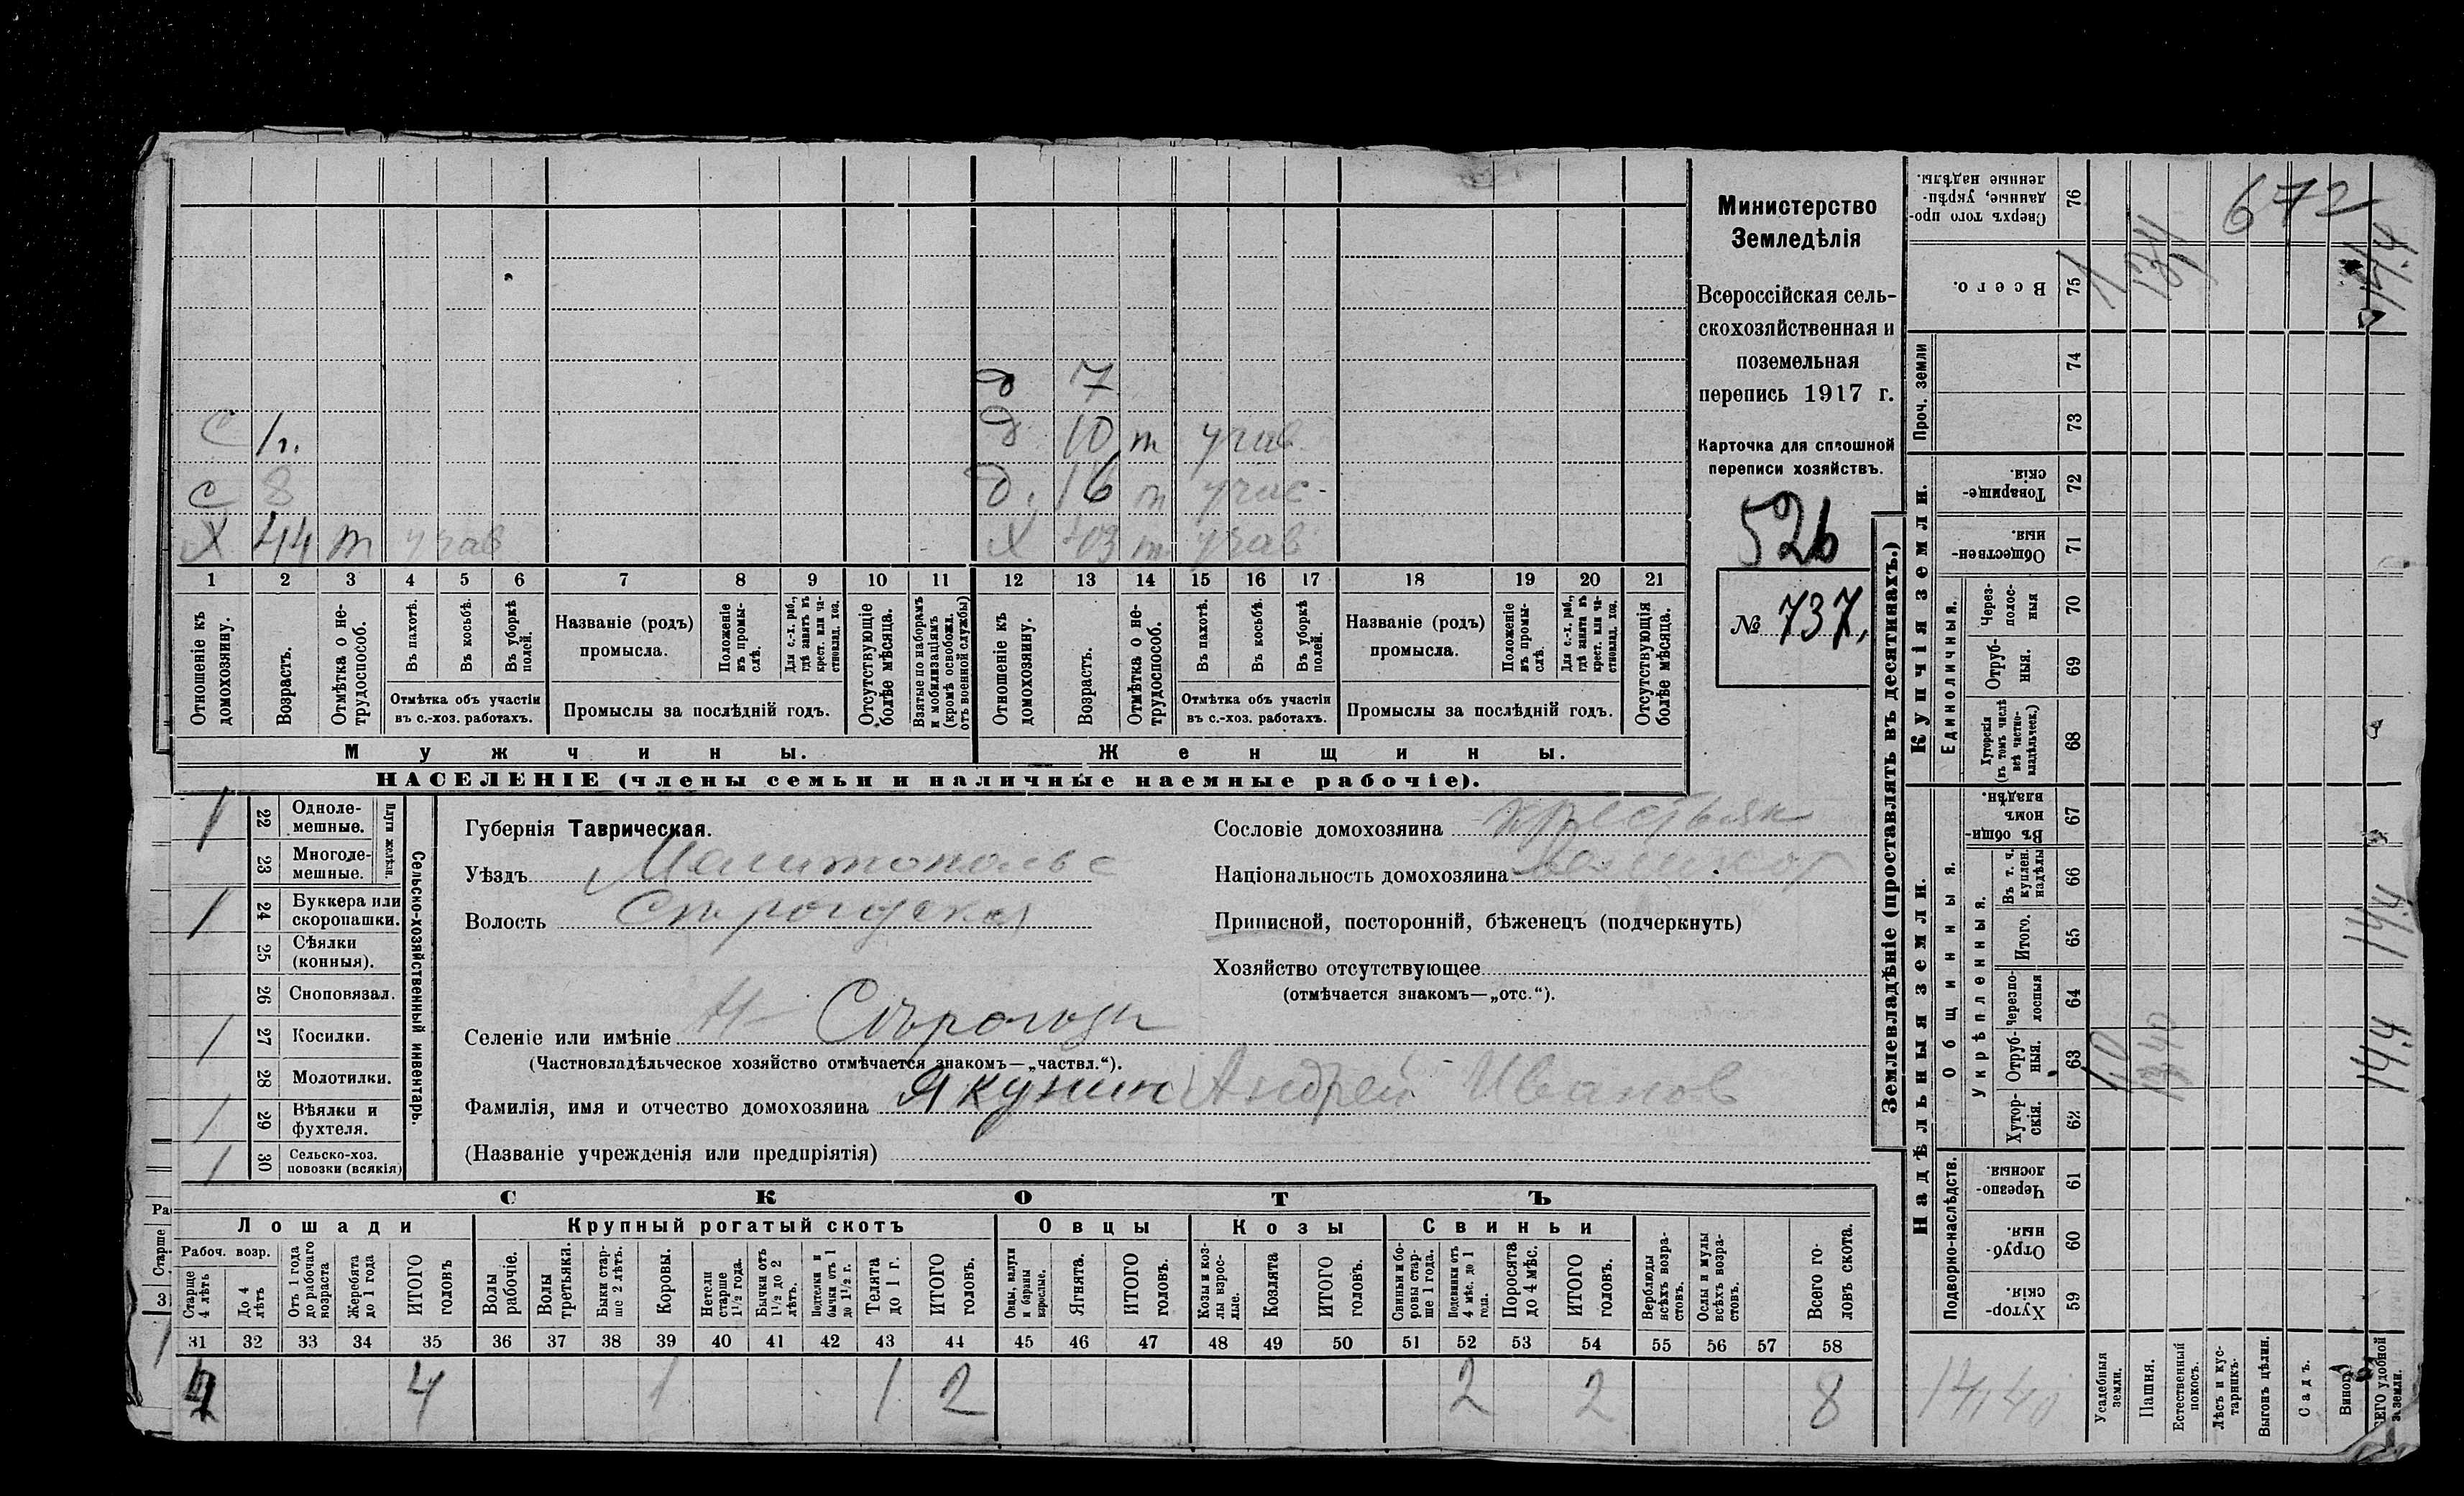 с 1 г.
с 8
х 44 т участ
д 7
д 10 т учав
д. 16 т учас
х 43 т учав
1 2 3 4 5 6 7 8 9 10 11 12 13 14 15 16 17 18 19 20 21
Отношеніе къ домохозяину.
Возрастъ.
Отмѣтка о нетрудоспособ.
Въ пахотѣ.
Въ косьбѣ.
Въ уборкѣ полей.
Отмѣтка объ участіи въ с.-хоз. работахъ.
Названіе (родъ) промысла.
Положеніе въ промыслѣ.
Для с.-х. раб., гдѣ занятъ въ крест. или частновлад. хоз.
Промыслы за послѣдній годъ.
Отсутствующіе болѣе мѣсяца.
Взятые по наборамъ и мобилизаціямъ (кромѣ освобожд. отъ военной службы)
Отношеніе къ домохозяину.
Возрастъ.
Отмѣтка о нетрудоспособ.
Въ пахотѣ.
Въ косьбѣ.
Въ уборкѣ полей.
Отмѣтка объ участіи въ с.-хоз. работахъ.
Названіе (родъ) промысла.
Положеніе въ промыслѣ.
Для с.-х. раб., гдѣ занята въ крест. или частновлад. хоз.
Промыслы за послѣдній годъ.
Отсутствующія болѣе мѣсяца.
Мужчины.
Женщины.
НАСЕЛЕНІЕ (члены семьи и наличные наемные рабочіе).
Министерство
Земледѣлія
Всероссійская сель-
скохозяйственная и
поземельная
перепись 1917 г.
Карточка для сплошной
переписи хозяйствъ.
526
№ 737.
1 22 Одноле-мешные.
23 Многоле-мешные.
Плуги желѣзн.
1 24 Буккера или скоропашки.
25 Сѣялки (конныя).
26 Сноповязал.
1 27 Косилки.
28 Молотилки.
1 29 Вѣялки и фухтеля.
1 30 Сельско-хоз. повозки (всякія)
Сельско-хозяйственный инвентарь.
Губернія Таврическая.
Уѣздъ Мелитопольс
Волость Сѣрогозская
Селеніе или имѣніе Н-Сѣрогозы
(Частновладѣльческое хозяйство отмѣчается знакомъ—„частвл.“).
Фамилія, имя и отчество домохозяина Якунин Андрей Иванов
(Названіе учрежденія или предпріятія)
Сословіе домохозяина крестьян
Національность домохозяина
Приписной, посторонній, бѣженецъ (подчеркнуть)
Хозяйство отсутствующее
(отмѣчается знакомъ—„отс.“).
СКОТЪ
Лошади
Крупный рогатый скотъ
Овцы
Козы
Свиньи
Рабоч. возр.
Старше 4 лѣтъ
До 4 лѣтъ
Отъ 1 года до рабочаго возраста
Жеребята до 1 года
ИТОГО головъ
Волы рабочіе.
Волы третьяки.
Быки старше 2 лѣтъ.
Коровы.
Нетели старше 1½ года.
Бычки отъ 1½ до 2 лѣтъ.
Подтелки и бычки отъ 1 до 1½ г.
Телята до 1 г.
ИТОГО головъ.
Овцы, валухи и бараны взрослые.
Ягнята.
ИТОГО головъ.
Козы и козлы взрослые.
Козлята
ИТОГО головъ.
Свиньи и боровы старше 1 года.
Подсвинки отъ 4 мѣс. до 1 года.
Поросята до 4 мѣс.
ИТОГО головъ.
Верблюды всѣхъ возрастовъ.
Ослы и мулы всѣхъ возрастовъ.
Всего головъ скота.
31 32 33 34 35 36 37 38 39 40 41 42 43 44 45 46 47 48 49 50 51 52 53 54 55 56 57 58
4 1 1 2 2 2 8
Землевладѣніе (проставлять въ десятинахъ.)
Надѣльныя земли.
Купчія земли.
Проч. земли
Подворно-наслѣдств.
Общинныя.
Укрѣпленныя.
Единоличныя.
Хуторскія. 59
Отрубныя. 60
Черезполосныя. 61
Хуторскія. 62
Отрубныя. 63
Черезполосныя 64
Итого. 65
Въ т. ч. куплен. надѣлы 66
Въ общинномъ владѣн. 67
Хуторскія (въ томъ числѣ всѣ частновладѣльческ.) 68
Отрубныя. 69
Черезполосныя 70
Общественныя. 71
Товарищескія. 72
73
74
Всего. 75
Сверхъ того проданные, укрѣпленные надѣлы. 76
672
1
14,4
14,4
14,4
14,40
Усадебныя земли.
Пашня.
Естественный покосъ.
Лѣсъ и кустарникъ.
Выгонъ цѣлин.
Садъ.